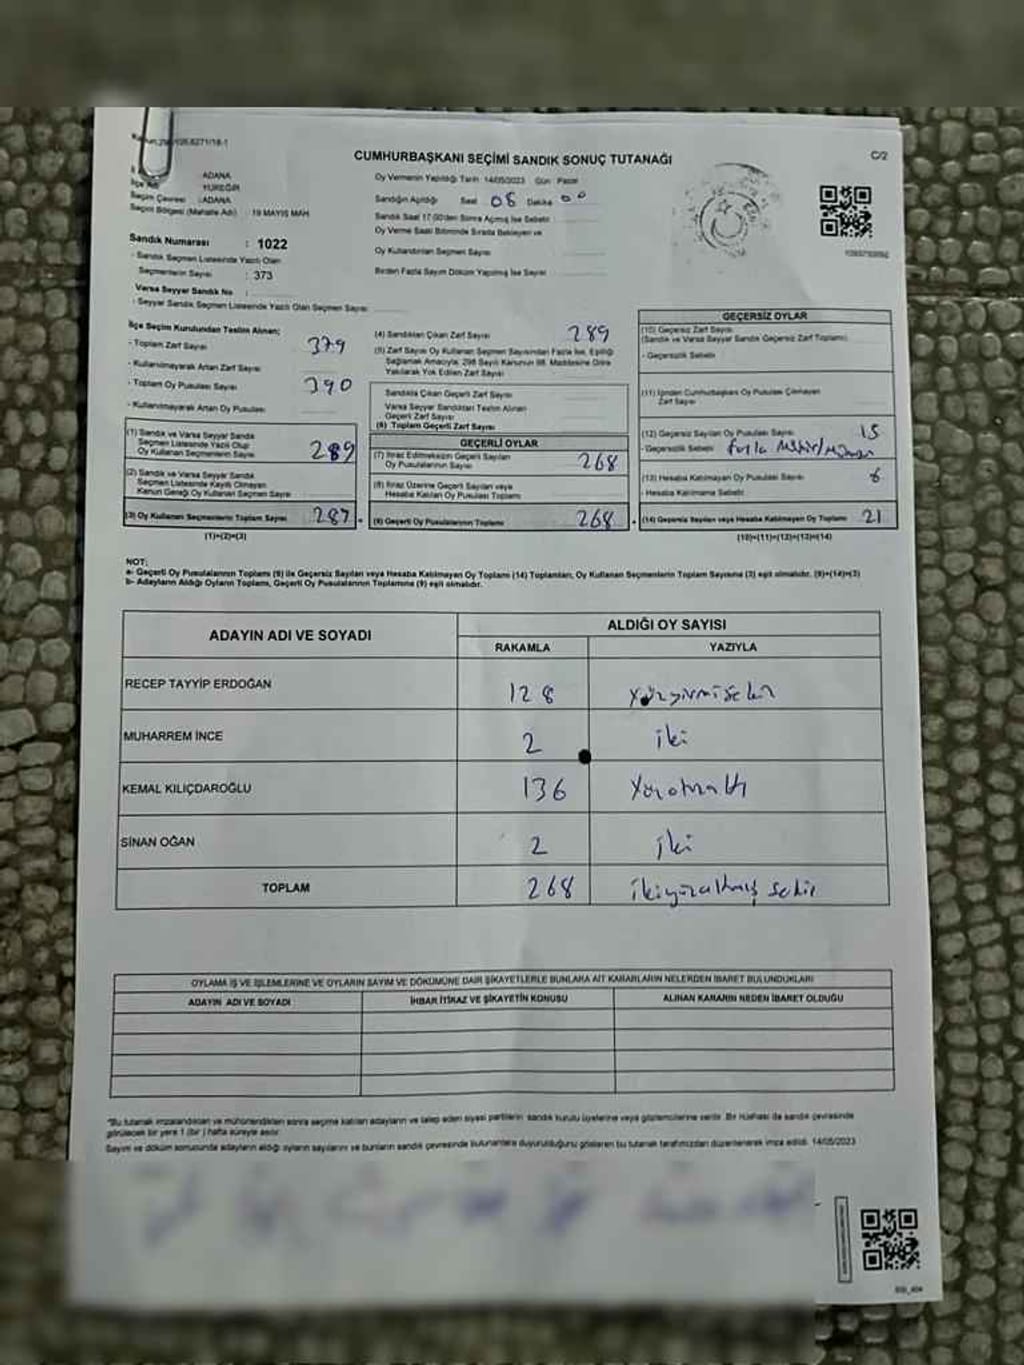 CUMHURBAŞKANI SEÇİMİ SANDIK SONUÇ TUTANAĞI
C/2
ADANA
İlçe Adı YÜREĞİR
Seçim Çevresi : ADANA
Seçim Bölgesi (Mahalle Adı) : 19 MAYIS MAH
Sandık Numarası : 1022
- Sandık Seçmen Listesinde Yazılı Olan
Seçmenlerin Sayısı : 373
Varsa Seyyar Sandık No :
- Seyyar Sandık Seçmen Listesinde Yazılı Olan Seçmen Sayısı :
Oy Vermenin Yapıldığı Tarih 14/05/2023 Gün Pazar
Sandığın Açıldığı Saat 08 Dakika 00
Sandık Saat 17.00'den Sonra Açılmış İse Sebebi
Oy Verme Saati Bitiminde Sırada Bekleyen ve
Oy Kullandırılan Seçmen Sayısı
Birden Fazla Sayım Döküm Yapılmış İse Sayısı
İlçe Seçim Kurulundan Teslim Alınan;
- Toplam Zarf Sayısı : 379
- Kullanılmayarak Artan Zarf Sayısı :
- Toplam Oy Pusulası Sayısı : 390
- Kullanılmayarak Artan Oy Pusulası :
(1) Sandık ve Varsa Seyyar Sandık
Seçmen Listesinde Yazılı Olup
Oy Kullanan Seçmenlerin Sayısı 289
(2) Sandık ve Varsa Seyyar Sandık
Seçmen Listesinde Kayıtlı Olmayan
Kanun Gereği Oy Kullanan Seçmen Sayısı
(3) Oy Kullanan Seçmenlerin Toplam Sayısı 287
(1)+(2)=(3)
(4) Sandıktan Çıkan Zarf Sayısı 289
(5) Zarf Sayısı Oy Kullanan Seçmen Sayısından Fazla İse, Eşitliği
Sağlamak Amacıyla, 298 Sayılı Kanunun 98. Maddesine Göre
Yakılarak Yok Edilen Zarf Sayısı
Sandıkta Çıkan Geçerli Zarf Sayısı
Varsa Seyyar Sandıktan Teslim Alınan
Geçerli Zarf Sayısı
(6) Toplam Geçerli Zarf Sayısı
GEÇERLİ OYLAR
(7) İtiraz Edilmeksizin Geçerli Sayılan
Oy Pusulalarının Sayısı 268
(8) İtiraz Üzerine Geçerli Sayılan veya
Hesaba Katılan Oy Pusulaları Toplamı
(9) Geçerli Oy Pusulalarının Toplamı 268
GEÇERSİZ OYLAR
(10) Geçersiz Zarf Sayısı
(Sandık ve Varsa Seyyar Sandık Geçersiz Zarf Toplamı)
- Geçersizlik Sebebi
(11) İçinden Cumhurbaşkanı Oy Pusulası Çıkmayan
Zarf Sayısı
(12) Geçersiz Sayılan Oy Pusulası Sayısı 15
- Geçersizlik Sebebi fazla
(13) Hesaba Katılmayan Oy Pusulası Sayısı 6
- Hesaba Katılmama Sebebi
(14) Geçersiz Sayılan veya Hesaba Katılmayan Oy Toplamı 21
(10)+(11)+(12)+(13)=(14)
NOT:
a- Geçerli Oy Pusulalarının Toplamı (9) ile Geçersiz Sayılan veya Hesaba Katılmayan Oy Toplamı (14) Toplamları, Oy Kullanan Seçmenlerin Toplam Sayısına (3) eşit olmalıdır. (9)+(14)=(3)
b- Adayların Aldığı Oyların Toplamı, Geçerli Oy Pusulalarının Toplamına (9) eşit olmalıdır.
ADAYIN ADI VE SOYADI
ALDIĞI OY SAYISI
RAKAMLA YAZIYLA
RECEP TAYYİP ERDOĞAN 128 Yüzyirmisekiz
MUHARREM İNCE 2 iki
KEMAL KILIÇDAROĞLU 136 Yüzotuzaltı
SİNAN OĞAN 2 iki
TOPLAM 268 ikiyüzaltmış sekiz
OYLAMA İŞ VE İŞLEMLERİNE VE OYLARIN SAYIM VE DÖKÜMÜNE DAİR ŞİKAYETLERLE BUNLARA AİT KARARLARIN NELERDEN İBARET BULUNDUKLARI
ADAYIN ADI VE SOYADI İHBAR İTİRAZ VE ŞİKAYETİN KONUSU ALINAN KARARIN NEDEN İBARET OLDUĞU
*Bu tutanak imzalandıktan ve mühürlendikten sonra seçime katılan adayların ve talep eden siyasi partilerin sandık kurulu üyelerine veya gözlemcilerine verilir. Bir nüshası da sandık çevresinde
görülecek bir yere 1 (bir) hafta süreyle asılır.
Sayım ve döküm sonucunda adayların aldığı oyların sayılarını ve bunların sandık çevresinde bulunanlara duyurulduğunu gösteren bu tutanak tarafımızdan düzenlenerek imza edildi. 14/05/2023